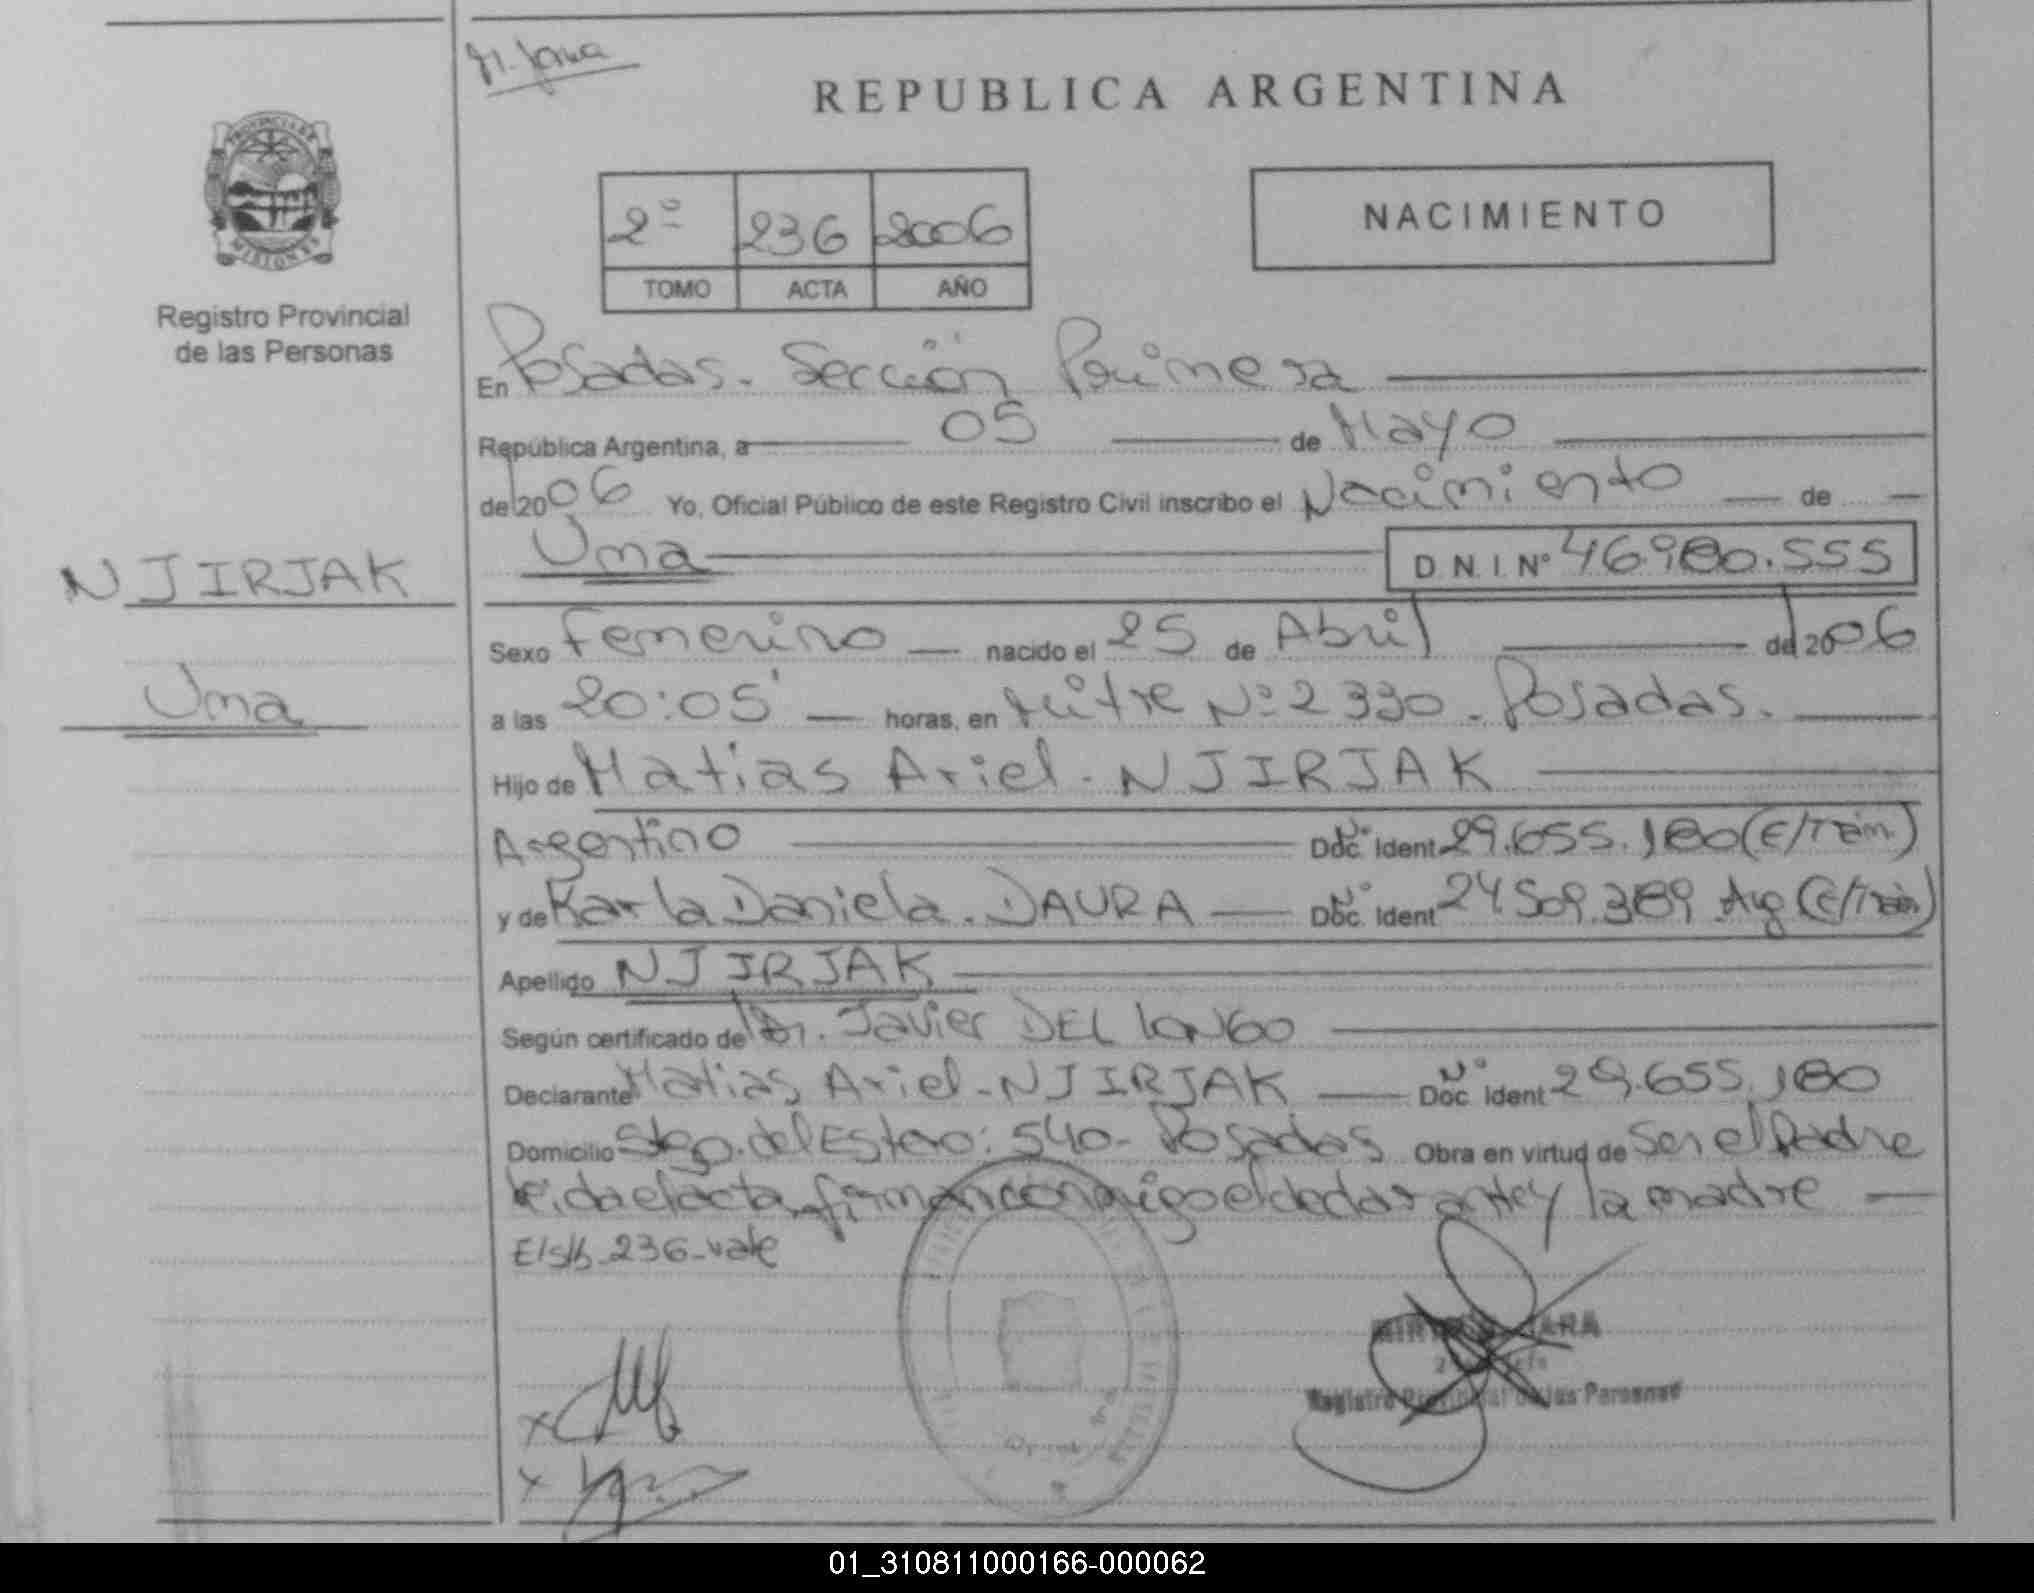 REPUBLICA ARGENTINA
PROVINCIA DE
MISIONES
Registro Provincial
de las Personas
2º 236 2006
TOMO ACTA AÑO
NACIMIENTO
En Posadas. Sección Primera
República Argentina, a 05 de Mayo
de 2006 Yo, Oficial Público de este Registro Civil inscribo el Nacimiento de
Uma D.N.I. Nº 46.980.555
NJIRJAK
Uma
Sexo Femenino nacido el 25 de Abril de 2006
a las 20:05' horas, en Mitre Nº 2330. Posadas.
Hijo de Matias Ariel - NJIRJAK
Argentino Nº Doc. Ident 29.655.180 (E/Trám.)
y de Karla Daniela. DAURA Nº Doc. Ident 24.509.389 Arg (E/Trám)
Apellido NJIRJAK
Según certificado de Dr. Javier DEL LONGO
Declarante Matias Ariel - NJIRJAK Nº Doc. Ident 29.655.180
Domicilio Stgo. del Estero: 540 - Posadas Obra en virtud de Ser el Padre
Leida el acta, firman conmigo el declarante y la madre
E/s/b. 236 - vale
Registro Provincial de las Personas
01_310811000166-000062